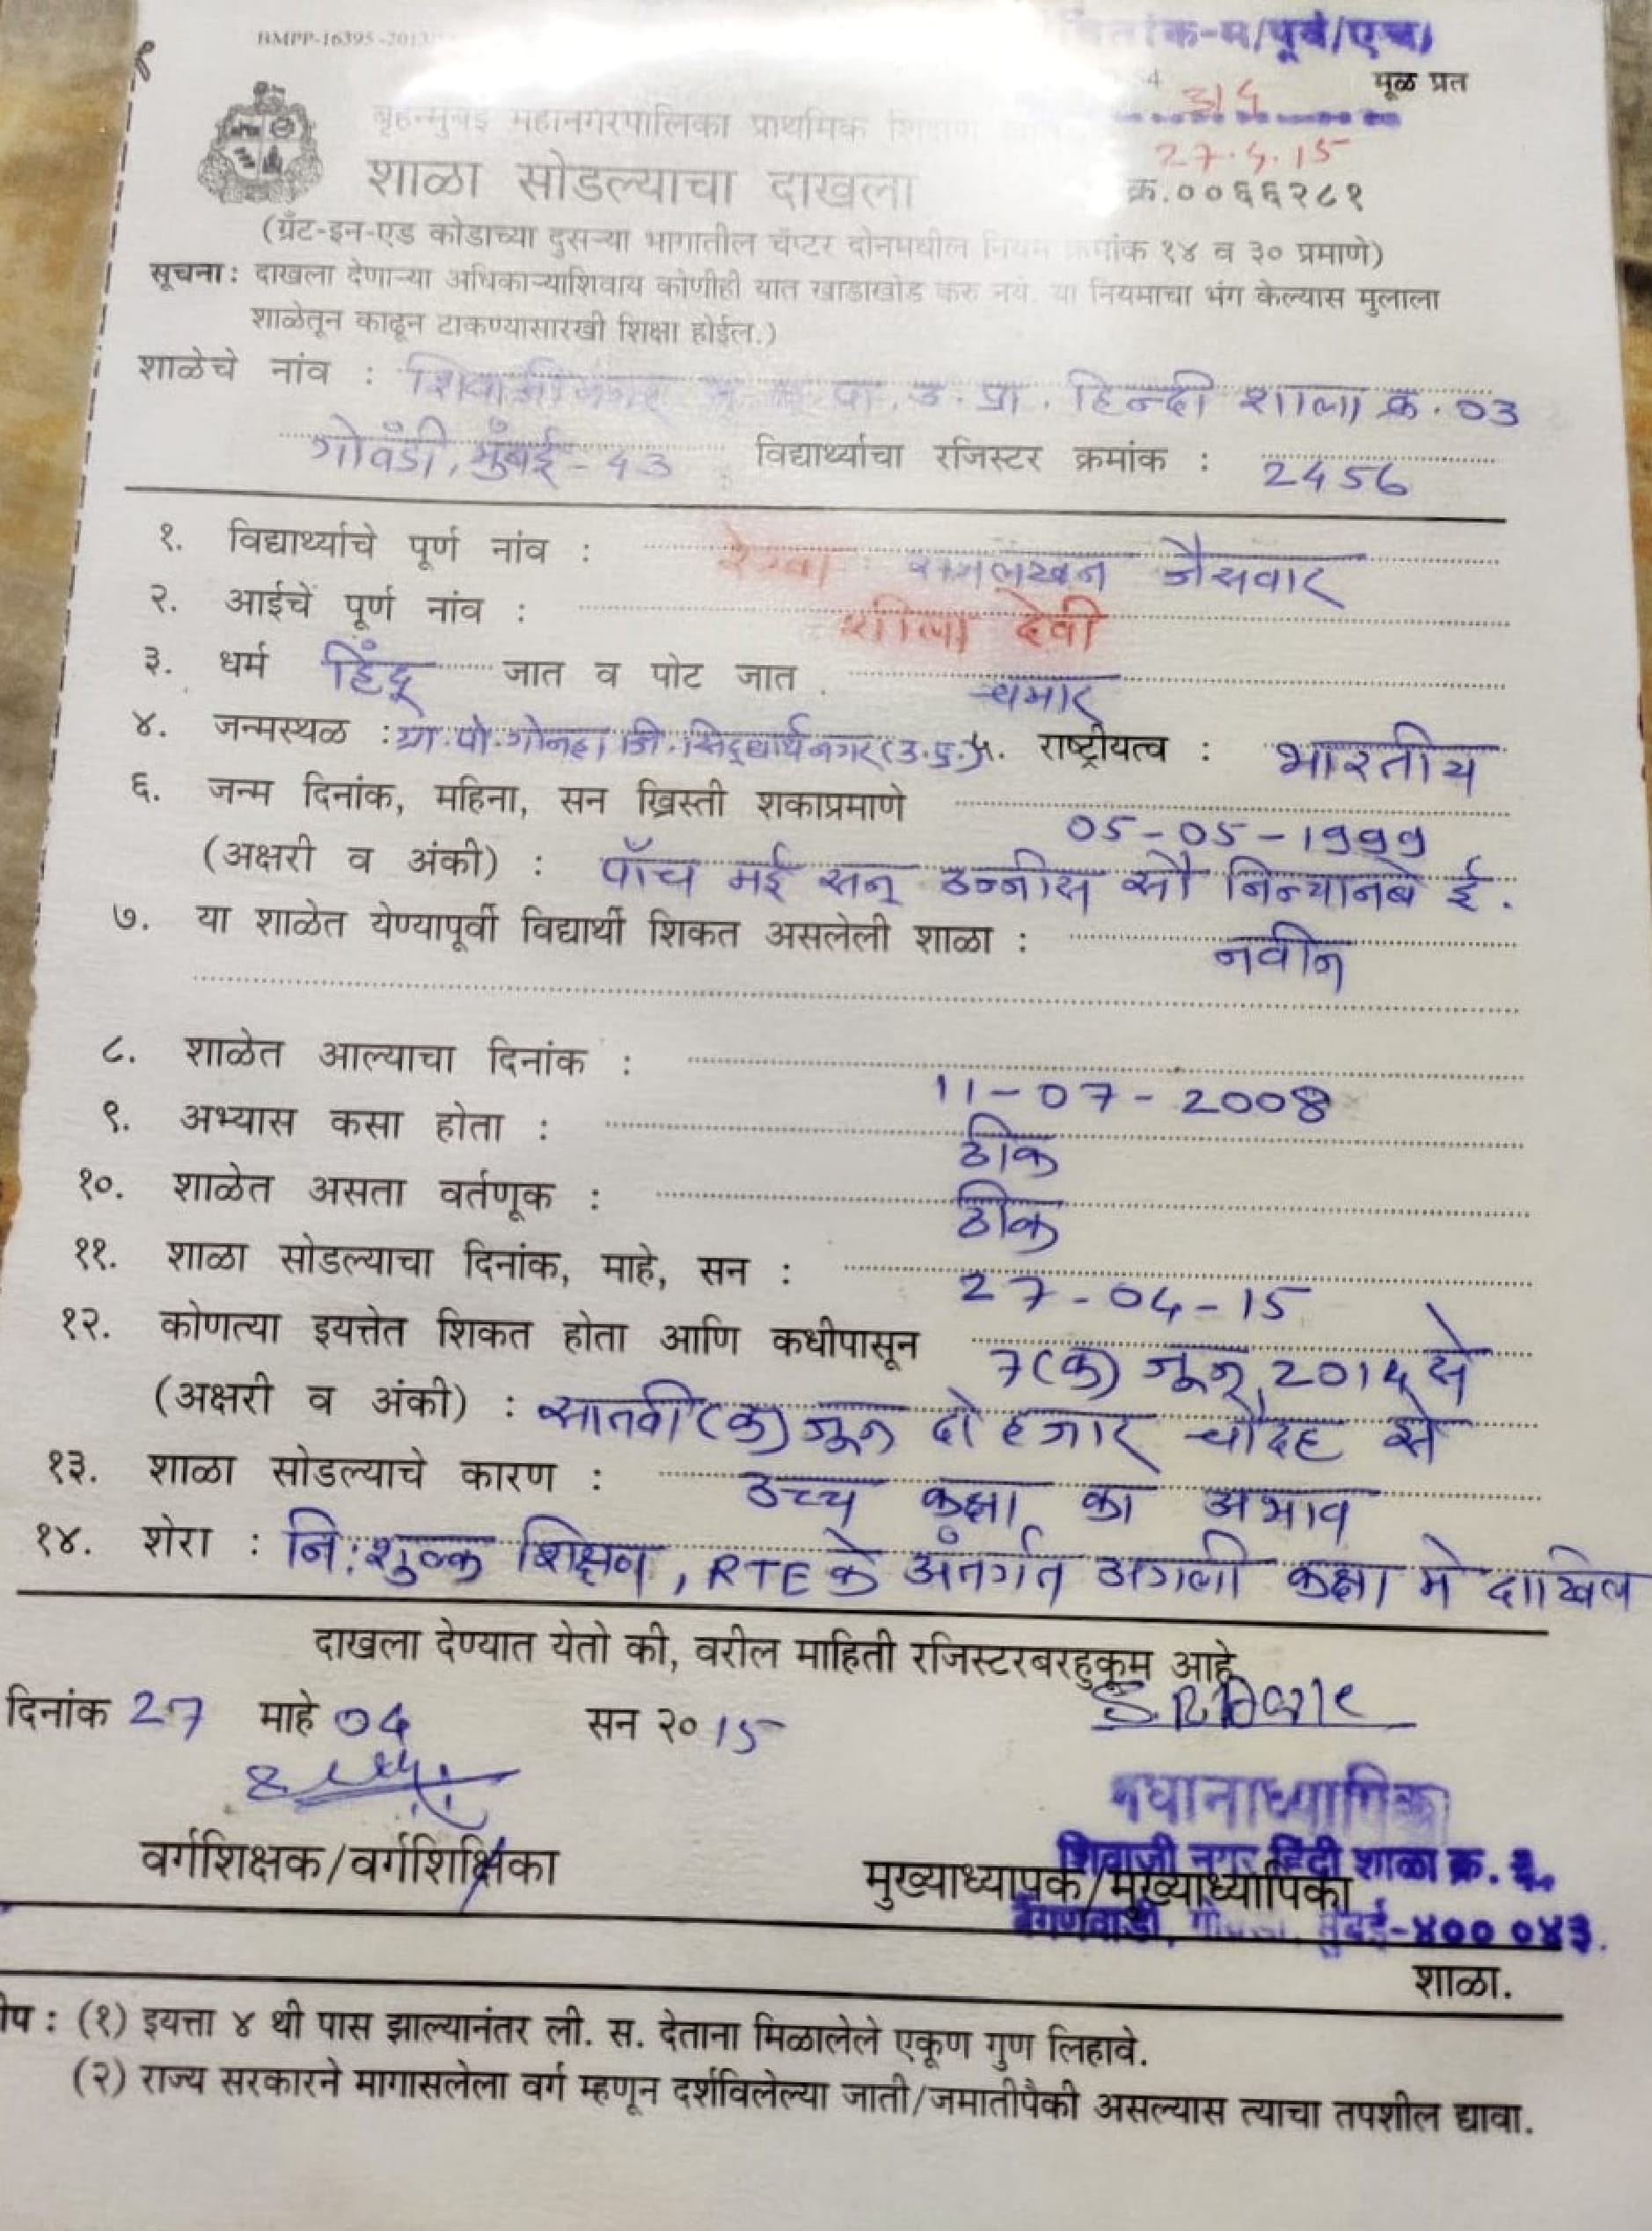 BMPP-16395-2013
मूळ प्रत
बृहन्मुंबई महानगरपालिका प्राथमिक शिक्षण
27.4.15
शाळा सोडल्याचा दाखला
क्र.००६६२८१
(ग्रँट-इन-एड कोडाच्या दुसऱ्या भागातील चॅप्टर दोनमधील नियम क्रमांक १४ व ३० प्रमाणे)
सूचना : दाखला देणाऱ्या अधिकाऱ्याशिवाय कोणीही यात खाडाखोड करु नये. या नियमाचा भंग केल्यास मुलाला
शाळेतून काढून टाकण्यासारखी शिक्षा होईल.)
शाळेचे नांव : शिवाजी नगर प्रा. हिन्दी शाला क्र. 03
गोवंडी, मुंबई - 43 विद्यार्थ्याचा रजिस्टर क्रमांक : 2456
१. विद्यार्थ्याचे पूर्ण नांव : रेखा रामलखन जैसवार
२. आईचें पूर्ण नांव : शीला देवी
३. धर्म हिंदू जात व पोट जात चमार
४. जन्मस्थळ : ग्रा.पो. जि. सिद्धार्थनगर (उ.प्र.) ५. राष्ट्रीयत्व : भारतीय
६. जन्म दिनांक, महिना, सन ख्रिस्ती शकाप्रमाणे 05-05-1999
(अक्षरी व अंकी) : पाँच मई सन् उन्नीस सौ निन्यानबे ई.
७. या शाळेत येण्यापूर्वी विद्यार्थी शिकत असलेली शाळा : नवीन
८. शाळेत आल्याचा दिनांक : 11-07-2008
९. अभ्यास कसा होता : ठीक
१०. शाळेत असता वर्तणूक : ठीक
११. शाळा सोडल्याचा दिनांक, माहे, सन : 27-04-15
१२. कोणत्या इयत्तेत शिकत होता आणि कधीपासून 7(क) जून, 2014 से
(अक्षरी व अंकी) : सातवी (क) जून दो हजार चौदह से
१३. शाळा सोडल्याचे कारण : उच्च कक्षा का अभाव
१४. शेरा : नि:शुल्क शिक्षण, RTE के अंतर्गत अगली कक्षा मे दाखिल
दाखला देण्यात येतो की, वरील माहिती रजिस्टरबरहुकूम आहे
दिनांक 27 माहे 04 सन २०15
प्रधानाध्यापिका
शिवाजी नगर हिंदी शाळा क्र. ३.
वर्गशिक्षक/वर्गशिक्षिका मुख्याध्यापक/मुख्याध्यापिका
बैंगणवाडी, गोवंडी, मुंबई-४०० ०४३.
शाळा.
टीप : (१) इयत्ता ४ थी पास झाल्यानंतर ली. स. देताना मिळालेले एकूण गुण लिहावे.
(२) राज्य सरकारने मागासलेला वर्ग म्हणून दर्शविलेल्या जाती/जमातीपैकी असल्यास त्याचा तपशील द्यावा.